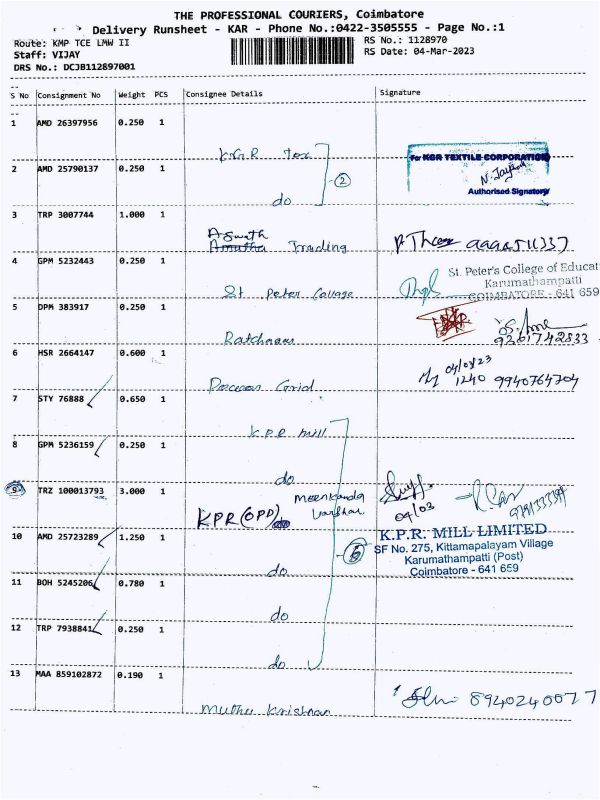 THE PROFESSIONAL COURIERS, Coimbatore
Delivery Runsheet - KAR - Phone No.:0422-3505555 - Page No.:1
Route: KMP TCE LMW II
RS No.: 1128970
Staff: VIJAY
RS Date: 04-Mar-2023
DRS No.: DCJB112897001
S No Consignment No Weight PCS Consignee Details Signature
1 AMD 26397956 0.250 1
K.G.R Tex
For KGR TEXTILE CORPORATION
2 AMD 25790137 0.250 1
2
N. Jayan
Authorised Signatory
do
3 TRP 3007744 1.000 1
Aswath
Amutha Trading
4 GPM 5232443 0.250 1
St. Peter's College of Educat
Karumathampatti
COIMBATORE - 641 659
St Peter Collage
5 DPM 383917 0.250 1
Ratchnaa
9361742833
6 HSR 2664147 0.600 1
04/03/23
1240 9940764704
Deccaan Grid
7 STY 76888 0.650 1
K.P.R mill
8 GPM 5236159 0.250 1
do
9 TRZ 100013793 3.000 1
Meenkanda
Varshan
KPR (OPD)
04/03
10 AMD 25723289 1.250 1
K.P.R. MILL LIMITED
SF No. 275, Kittamapalayam Village
Karumathampatti (Post)
Coimbatore - 641 659
6
do
11 BOH 5245206 0.780 1
do
12 TRP 7938841 0.250 1
do
13 MAA 859102872 0.190 1
8940240077
Muthu Krishnan